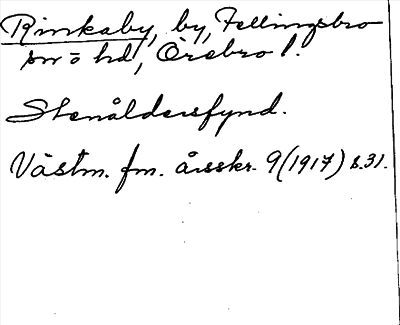 Rinkaby, by, Fellingsbro
sn o hd, Örebro l.
Stenåldersfynd.
Västm. fm. årsskr. 9 (1917) s.31.